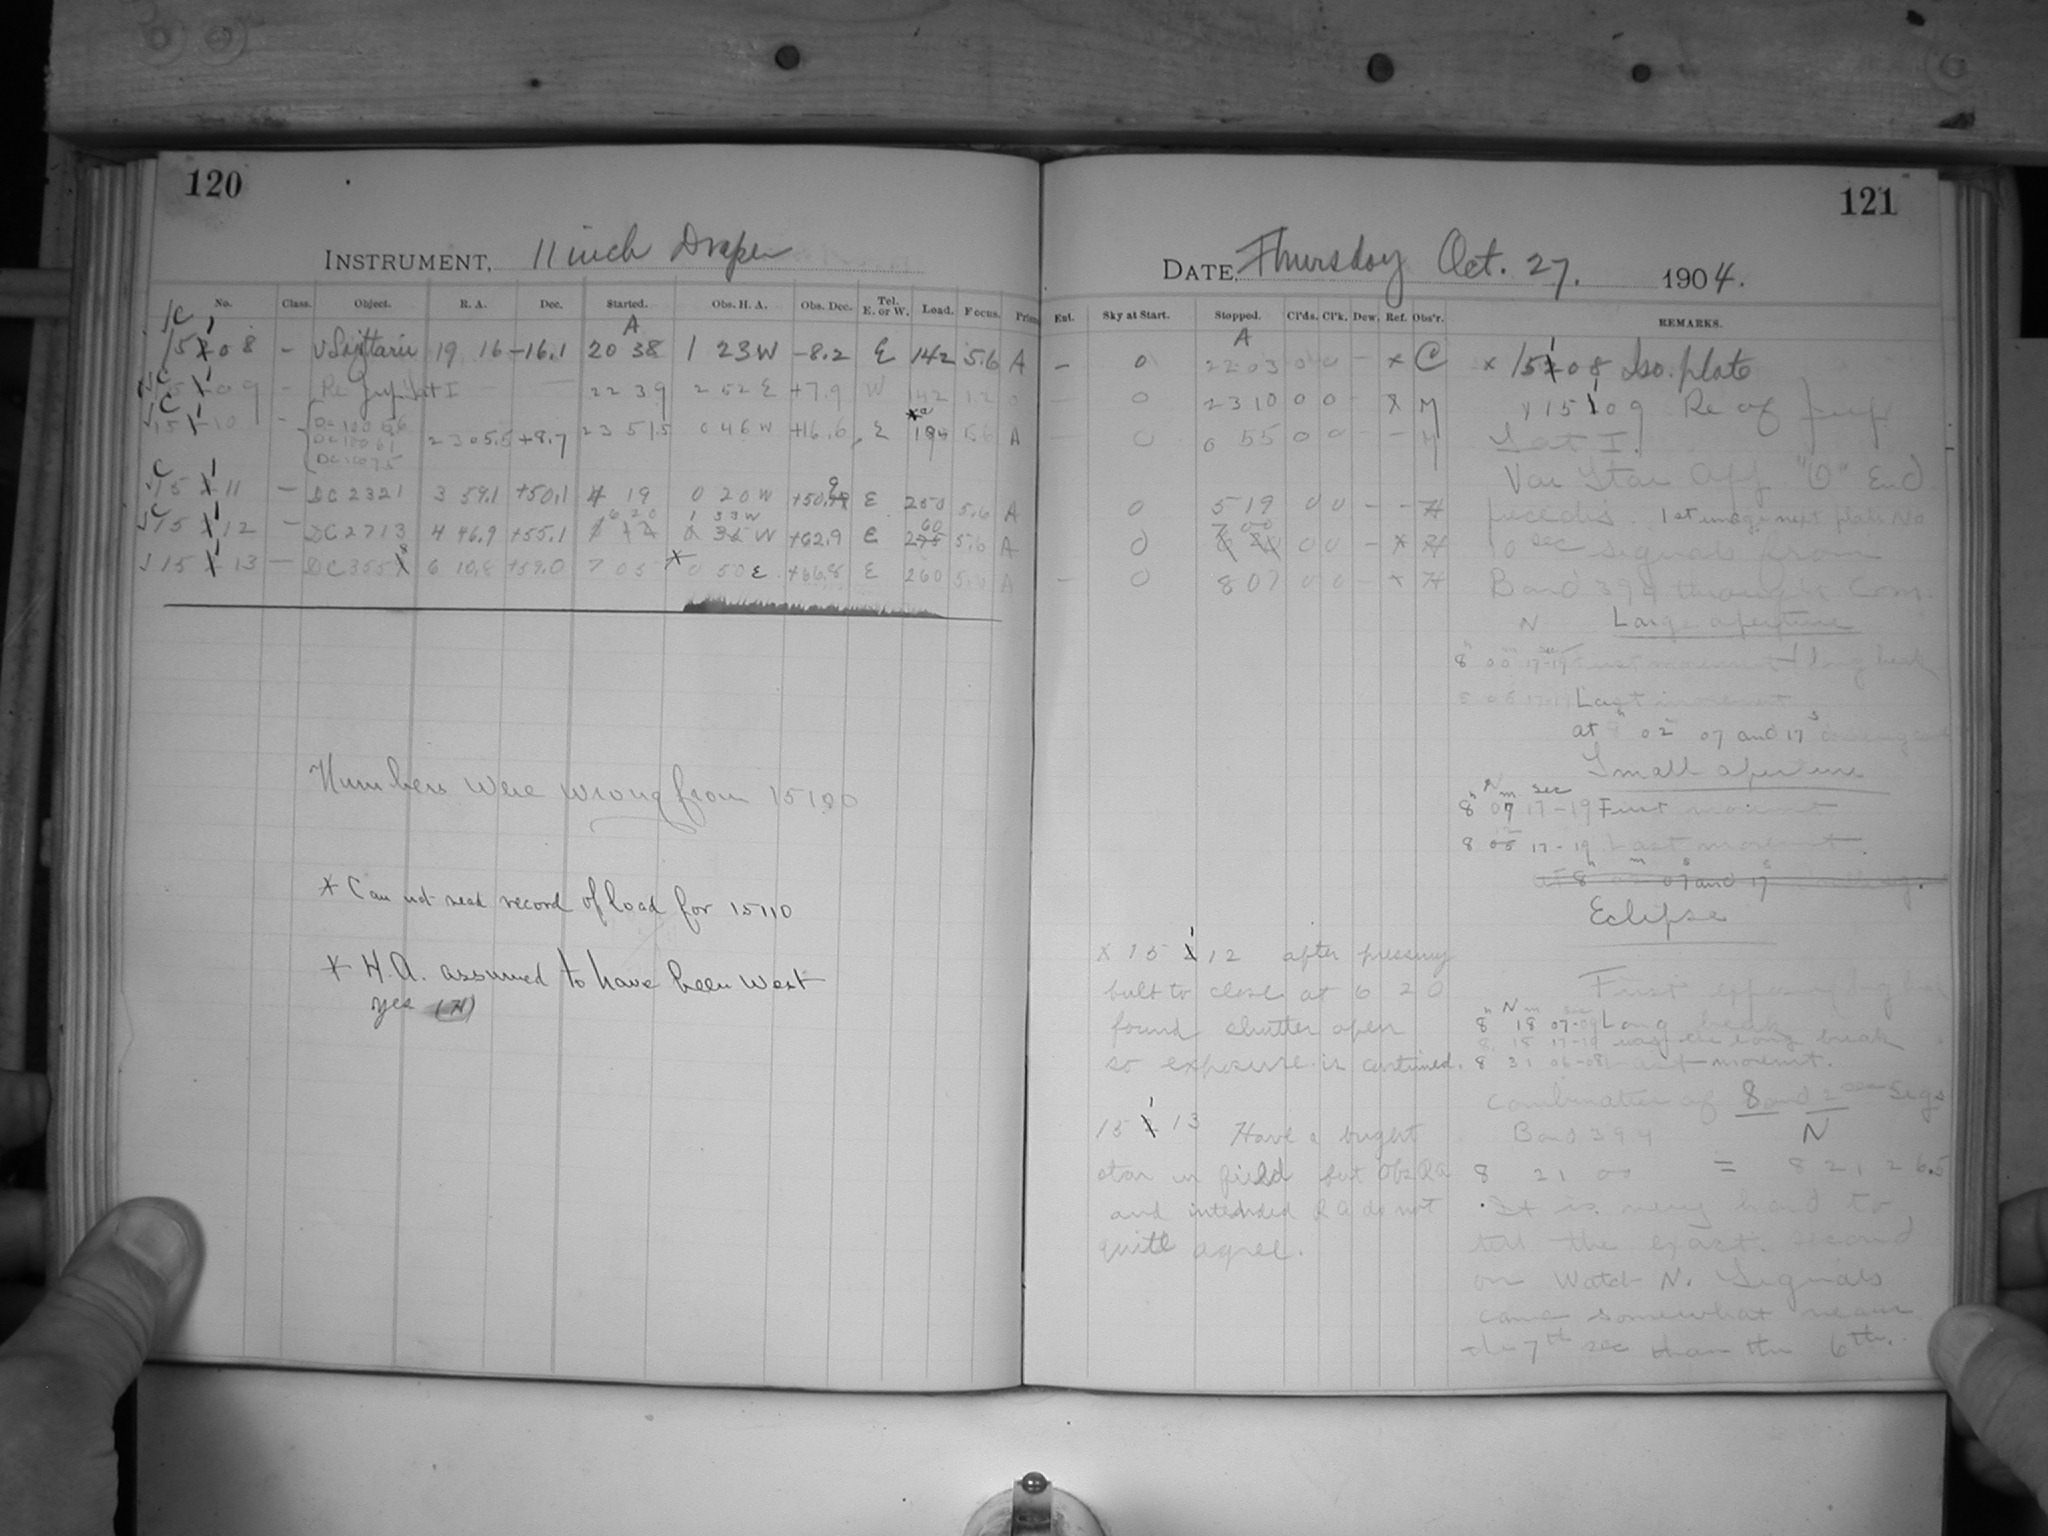 120
INSTRUMENT, 11 inch Draper
No. Class. Object. R. A. Dec. Started. Obs. H. A. Obs. Dec. Tel. E. or W. Load. Focus. Prism
A
15108 - υ Sagittarii 19 16 -16.1 20 38 1 23 W -8.2 E 142 5.6 A
15109 - Re Jup Sat I 22 39 2 52 E +7.9 W 142 1.2 0
15110 - 23 05.5 +8.7 23 51.5 0 46 W +16.6 E 5.6 A
15111 - DC 2321 3 59.1 +50.1 4 19 0 20 W E 250 5.6 A
6 20 1 33 W 60
15112 - DC 2713 4 46.9 +55.1 +62.9 E 5.6 A
15113 - 6 10.8 +59.0 7 05 * 0 50 E +66.8 E 260 5.6 A
Numbers were wrong from 15100
* Can not read record of load for 15110
* H.A. assumed to have been West
yes (H)
121
DATE, Thursday Oct. 27. 1904.
Ext. Sky at Start. Stopped. Cl'ds. Cl'k. Dew. Ref. Obs'r. REMARKS.
A
- 0 22 03 0 0 - x C x 15108 Iso. plate
- 0 23 10 0 0 - x M x 15109 Re of Jup
0 0 55 0 0 - - M Sat I.
Var Star App "O" End
0 5 19 0 0 - - H precedes 1st image next plate No
0 7 00 0 0 - x H 10 sec signals from
- 0 8 07 0 0 - x H Bond 394 throught Com.
N Large aperture
8 00 17-19 First movement long break
17-19 Last movement
at 8 02 07 and 17
Small aperture
N
h m sec
8 07 17-19 First movement
8 12 17-19 Last movement.
Eclipse
x 15112 after pressing
bulb to close at 6 20
found shutter open
so exposure is continued.
First
N
8 18 07-09 Long break
8 18 17-19 was the long break
8 31 06-08 Last movemt.
Combination of 8 and 2 sec sigs
Bond 394 N
8 21 00 = 8 21 26.5
15113 Have a bright
star in field but Obs RA
and intended RA do not
quite agree.
It is very hard to
tell the exact second
on Watch N. Signals
came somewhat nearer
the 7th sec than the 6th.